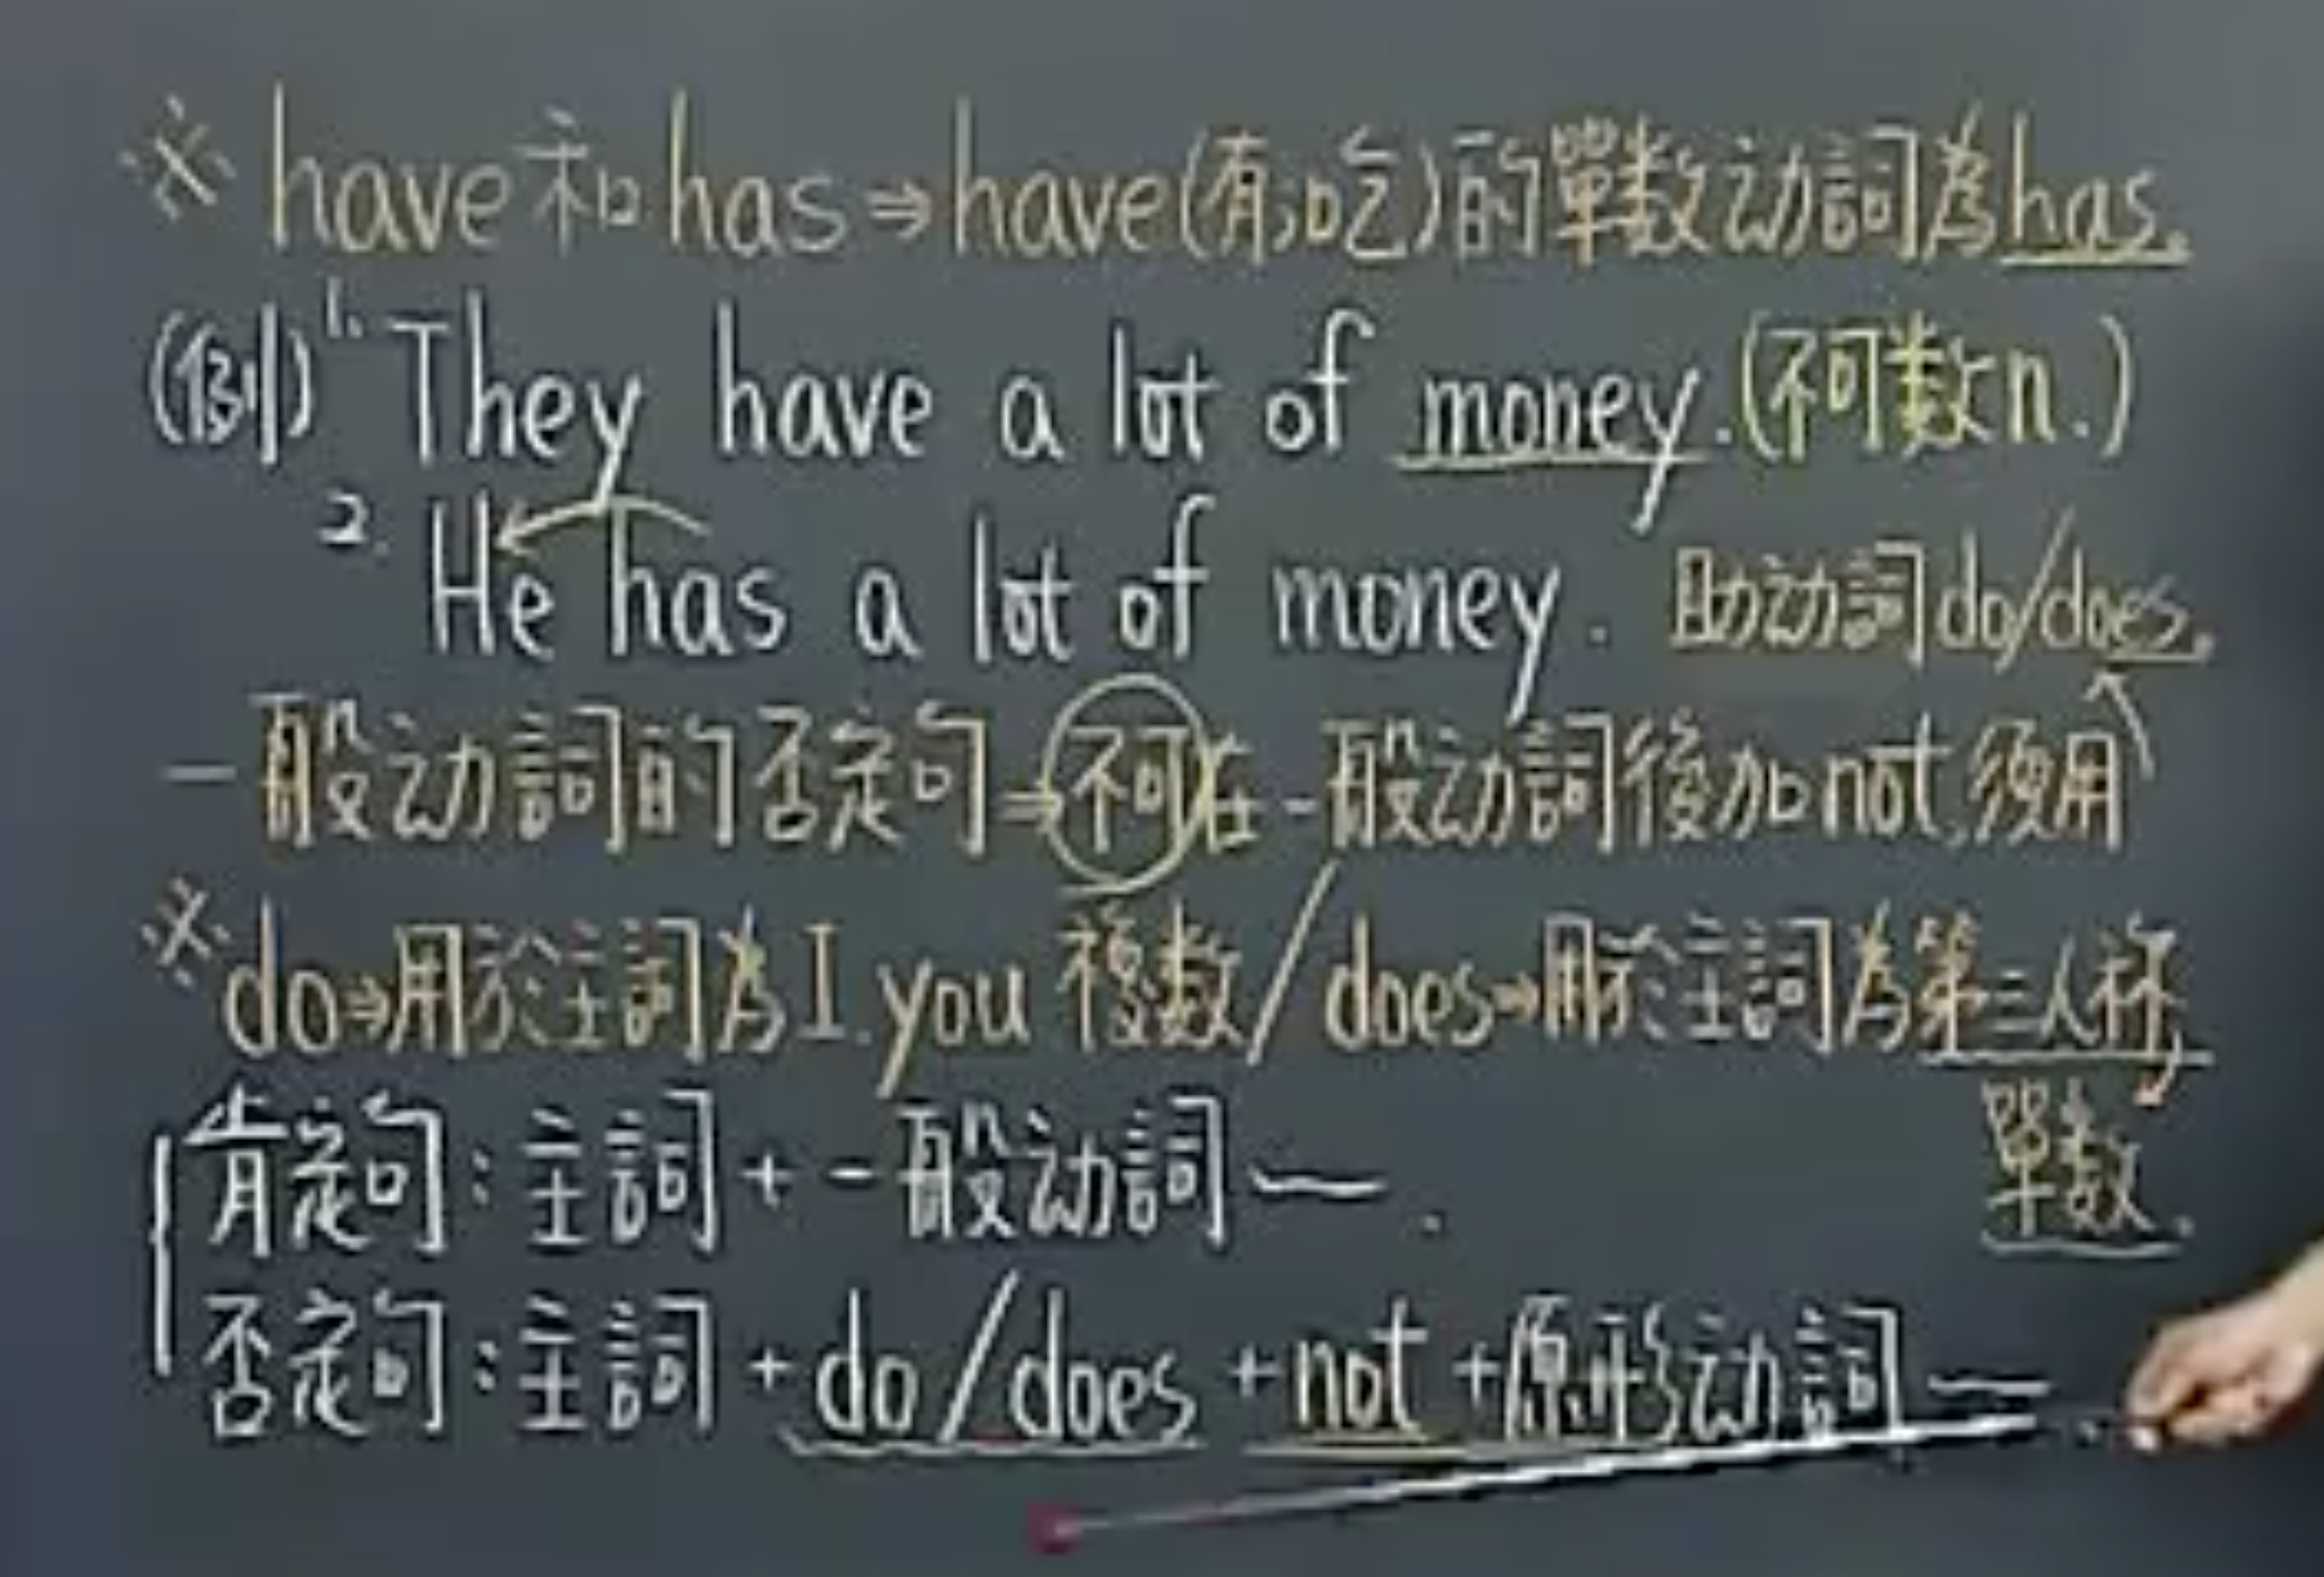 ※ have 和 has ⇒ have(有,吃)的單数动詞為has.
(例) 1. They have a lot of money. (不可數n.)
2. He has a lot of money. 助动詞do/does.
一般动詞的否定句⇒不可在一般动詞後加not,須用
※do⇒用於主詞為I.you 複數/does⇒用於主詞為第三人称
單数.
肯定句:主詞+一般动詞~.
否定句:主詞+do/does+not+原形动詞~.